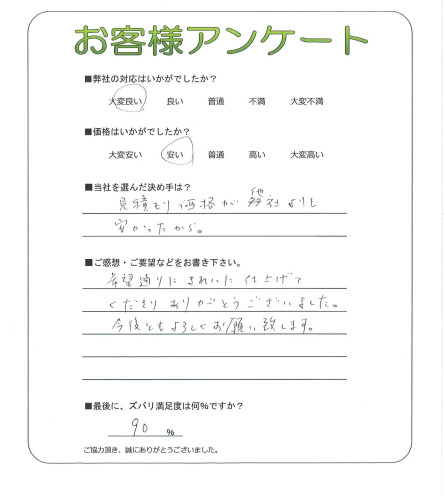 お客様アンケート
■弊社の対応はいかがでしたか？
大変良い 良い 普通 不満 大変不満
■価格はいかがでしたか？
大変安い 安い 普通 高い 大変高い
■当社を選んだ決め手は？
見積もり価格が他社よりも
安かったから。
■ご感想・ご要望などをお書き下さい。
希望通りにきれいに仕上げて
くださりありがとうございました。
今後ともよろしくお願い致します。
■最後に、ズバリ満足度は何％ですか？
90 %
ご協力頂き、誠にありがとうございました。